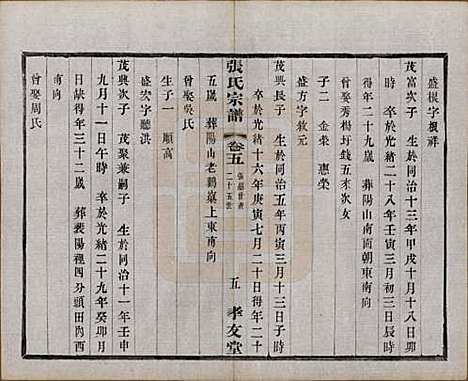 盛根字根祥
茂富次子 生於同治十三年甲戌十月十八日卯
時 卒於光緒二十八年壬寅三月初三日辰時
得年二十九歲 葬陽山南面朝東南向
曾娶秀樹圩錢五來次女
子二 金榮 惠榮
盛方字敘元
茂興長子 生於同治五年丙寅三月十三日子時
卒於光緒十六年庚寅七月二十日得年二十
張氏宗譜 卷五 二十五世 五 孝友堂
五歲 葬陽山老鶴嘉上東南向
曾娶吳氏
生子一 順高
盛宏字聽洪
茂興次子 茂聚兼嗣子 生於同治十一年壬申
九月十一日午時 卒於光緒二十九年癸卯月
日缺得年三十二歲 葬裴陽裡四分頭田內西
南向
曾娶周氏